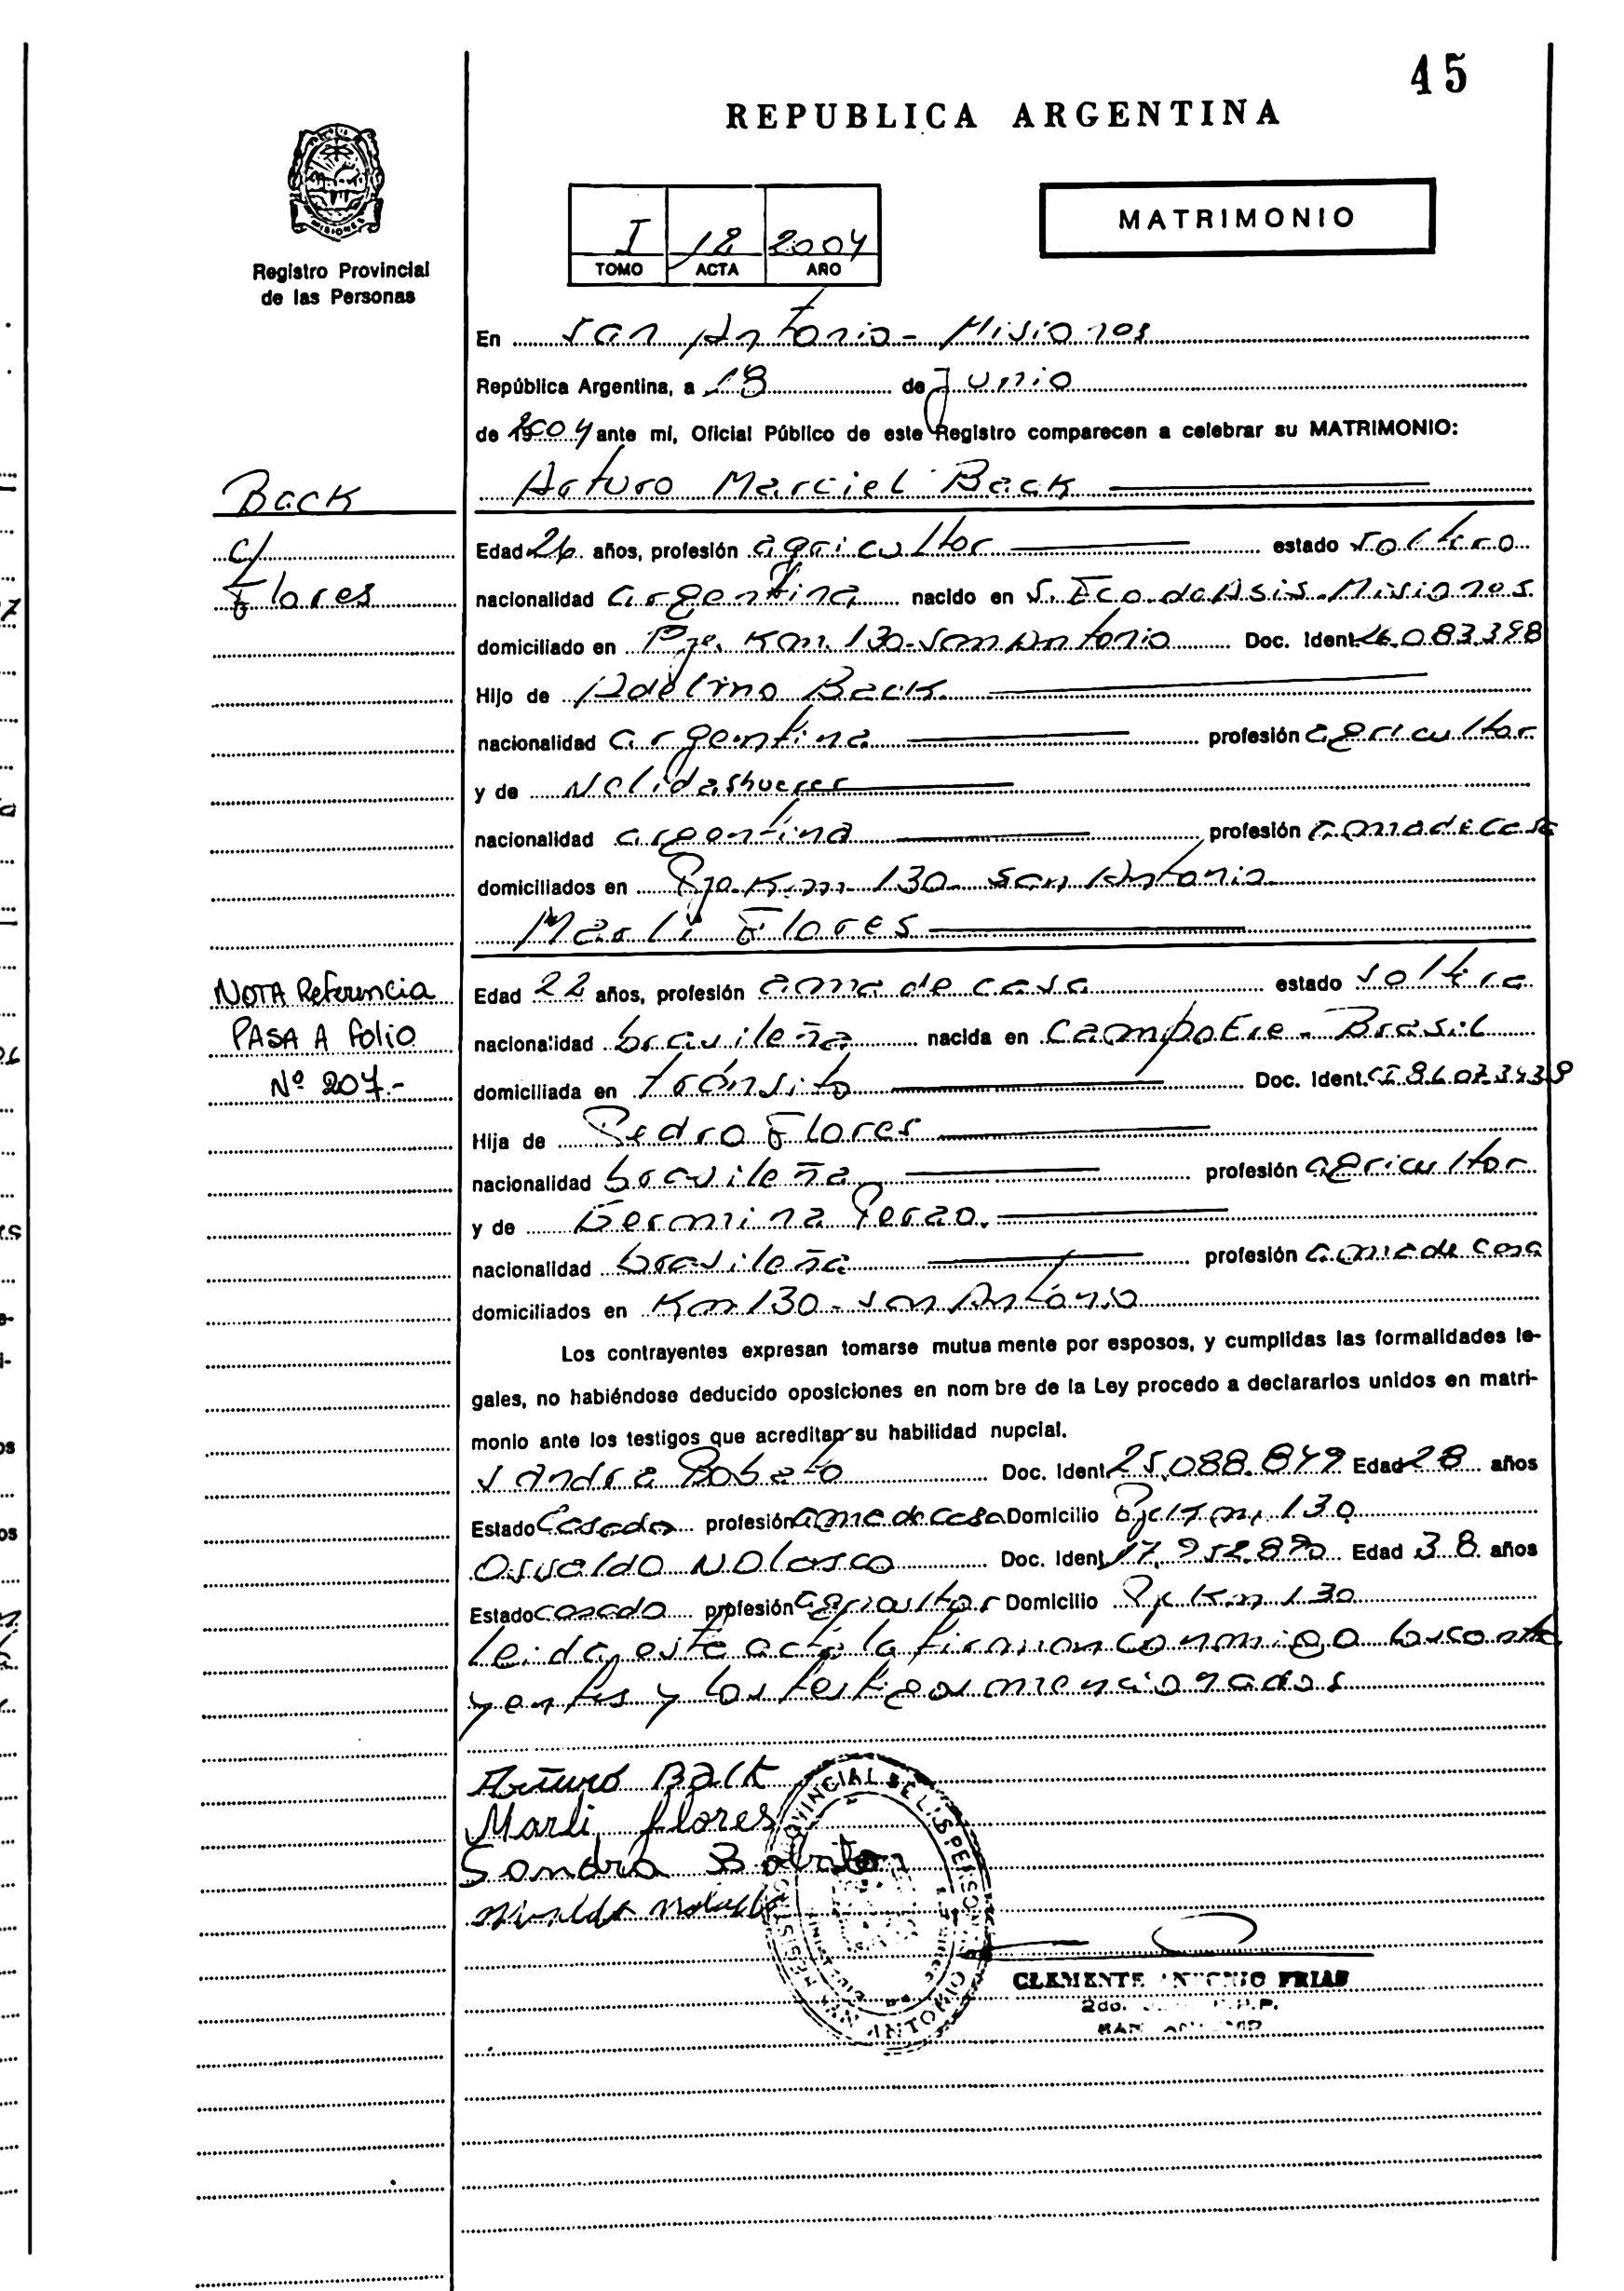 45
REPUBLICA ARGENTINA
MISIONES
Registro Provincial
de las Personas
I 12 2004
TOMO ACTA AÑO
MATRIMONIO
En San Antonio - Misiones
República Argentina, a 18 de Junio
de 2004 ante mí, Oficial Público de este Registro comparecen a celebrar su MATRIMONIO:
Back
c/
Flores
Arturo Marciel Back
Edad 26 años, profesión agricultor estado soltero
nacionalidad argentina nacido en S. Fco. de Asis. Misiones
domiciliado en Pje. Km. 130 - San Antonio Doc. Ident. 26.083.398
Hijo de Adelino Back
nacionalidad argentina profesión agricultor
y de Nelida
nacionalidad argentina profesión ama de casa
domiciliados en Pje. Km 130 - San Antonio
Marli Flores
NOTA Referencia
PASA A Folio
Nº 207.-
Edad 22 años, profesión ama de casa estado soltera
nacionalidad brasileña nacida en Campo Ere - Brasil
domiciliada en tránsito Doc. Ident.
Hija de Pedro Flores
nacionalidad brasileña profesión agricultor
y de
nacionalidad brasileña profesión ama de casa
domiciliados en Km 130 - San Antonio
Los contrayentes expresan tomarse mutuamente por esposos, y cumplidas las formalidades le-
gales, no habiéndose deducido oposiciones en nombre de la Ley procedo a declararlos unidos en matri-
monio ante los testigos que acreditan su habilidad nupcial.
Sandra Bobato Doc. Ident. 25.088.849 Edad 28 años
Estado Casada profesión ama de casa Domicilio Pje Km. 130
Osvaldo Nolasco Doc. Ident. 17.952.890 Edad 38 años
Estado casado profesión agricultor Domicilio Pje Km 130
Leida este acta la firman conmigo los contra
yentes y los testigos mencionados
Arturo Back
Marli flores
Sandra Bobato
CLEMENTE ANTONIO FRIAS
2do.
SAN ANTONIO